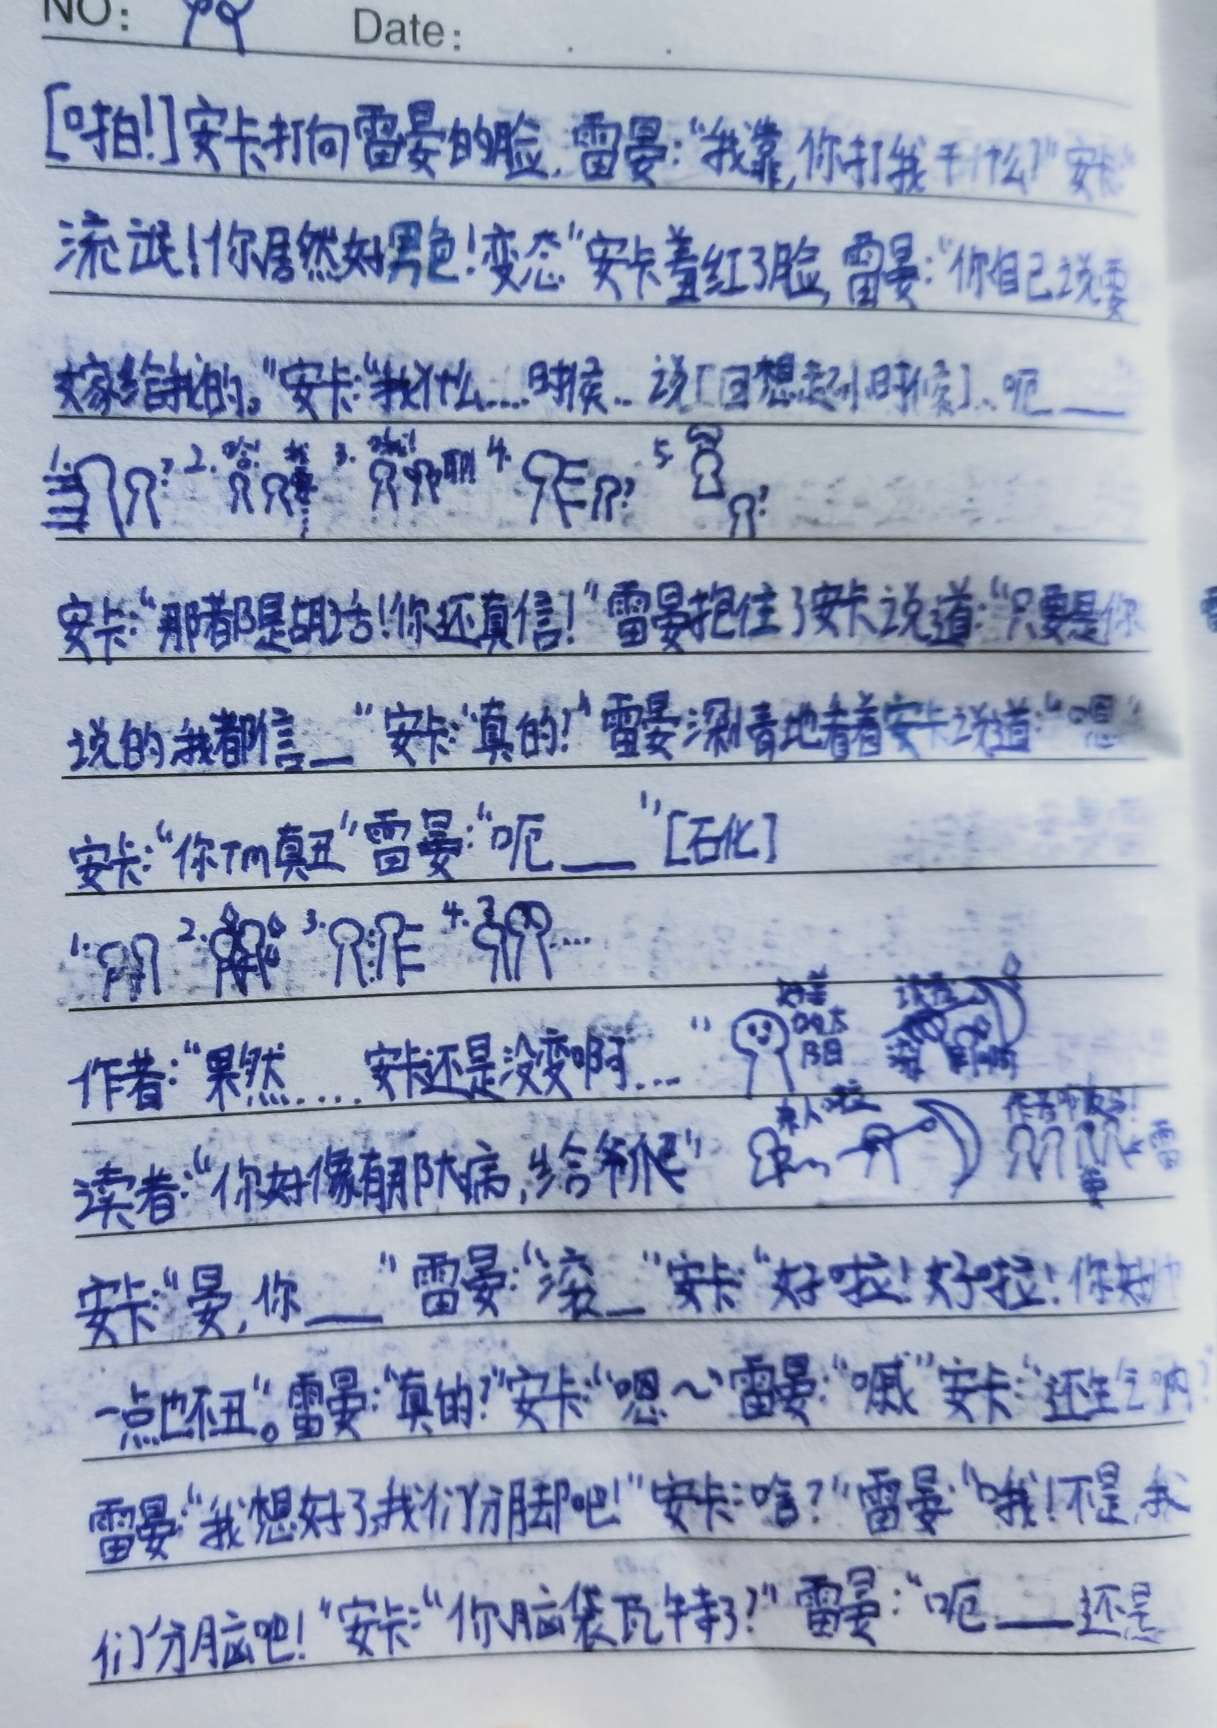 NO:
Date:
[啪!]安卡打向雷晏的脸,雷晏:"我靠,你打我干什么?"安卡"
流氓!你居然好男色!变态"安卡羞红了脸,雷晏:"你自己说要
嫁给我的。"安卡:"我什么....时候...说[回想起小时候]...呃——
1. ? 2. 3. 4. ? 5. ?
安卡:"那都是胡话!你还真信!"雷晏抱住了安卡说道:"只要是你
说的我都信——"安卡:"真的?"雷晏深情地看着安卡说道:"嗯"
安卡:"你TM真丑"雷晏:"呃——"[石化]
1. 2. 3. 4. ...
作者:"果然....安卡还是没变啊...."
来人啦
读者:"你好像有那大病,给爷爬"
安卡:"晏,你——"雷晏:"滚—"安卡:"好啦!好啦!你
一点也不丑"。雷晏:"真的?"安卡:"嗯~"雷晏:"嘁"安卡:"还生气呐?
雷晏:"我想好了,我们分脚吧!"安卡:啥?"雷晏:"哦!不是,我
们分脑吧!"安卡:"你脑袋瓦特了?"雷晏:"呃——还是